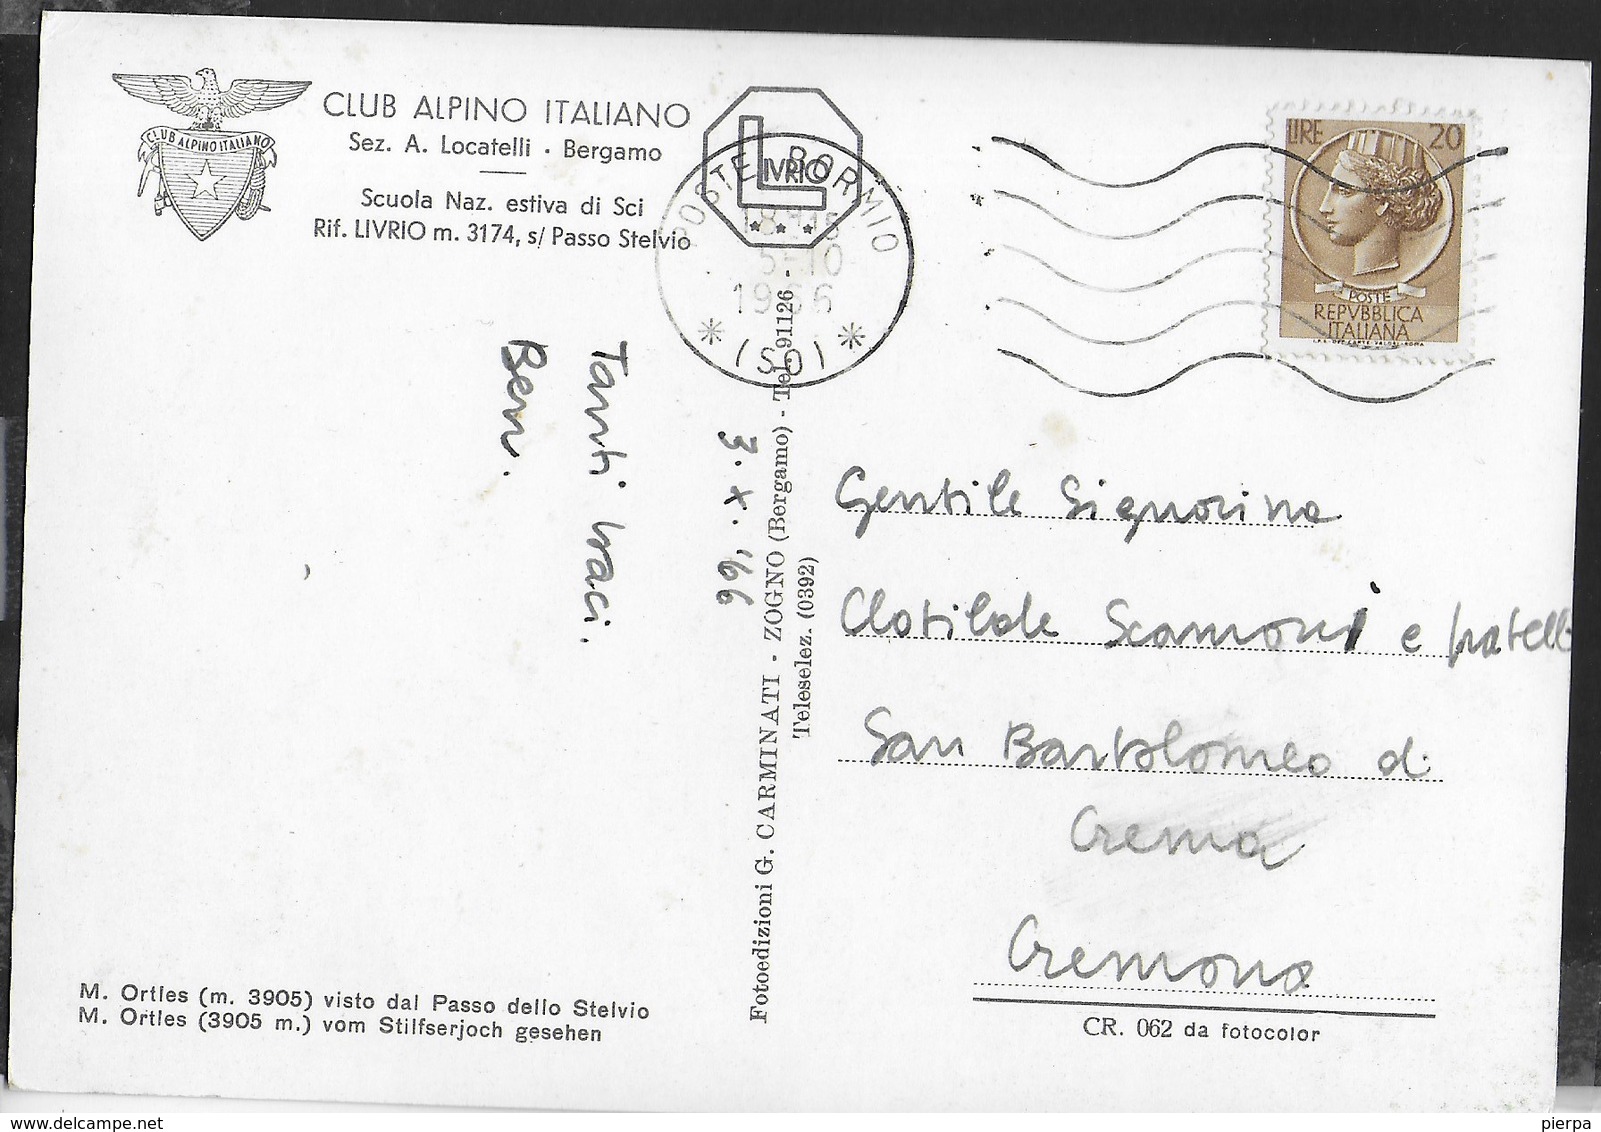 CLUB ALPINO ITALIANO
CLUB ALPINO ITALIANO
Sez. A. Locatelli • Bergamo
Scuola Naz. estiva di Sci
Rif. LIVRIO m. 3174, s/ Passo Stelvio
LIVRIO
POSTE BORMIO
5-10
1966
(SO)
LIRE 20
POSTE
REPVBBLICA
ITALIANA
3.X.'66
Tanti baci.
Beni.
Fotoedizioni G. CARMINATI - ZOGNO (Bergamo) - Tel. 91126 -
Teleselez. (0392)
Gentile Signorina
Clotilde Scamoni e fratelli
San Bartolomeo di
Crema
Cremona
M. Ortles (m. 3905) visto dal Passo dello Stelvio
M. Ortles (3905 m.) vom Stilfserjoch gesehen
CR. 062 da fotocolor
delcampe.net
pierpa